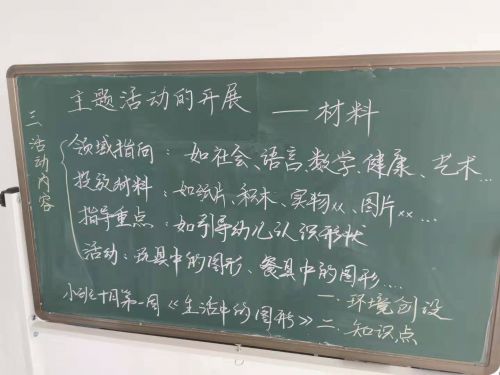 主题活动的开展 — 材料
三、活动内容
领域指向：如社会、语言、数学、健康、艺术…
投放材料：如纸片、积木、实物xx、图片xx…
指导重点：如引导幼儿认识形状
活动：玩具中的图形、餐具中的图形…
十月第一周《生活中的图形》
一.环境创设
二.知识点